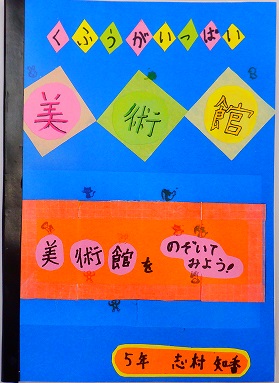 くふうがいっぱい
美術館
美術館を のぞいて
みよう!
5年 志村 知香